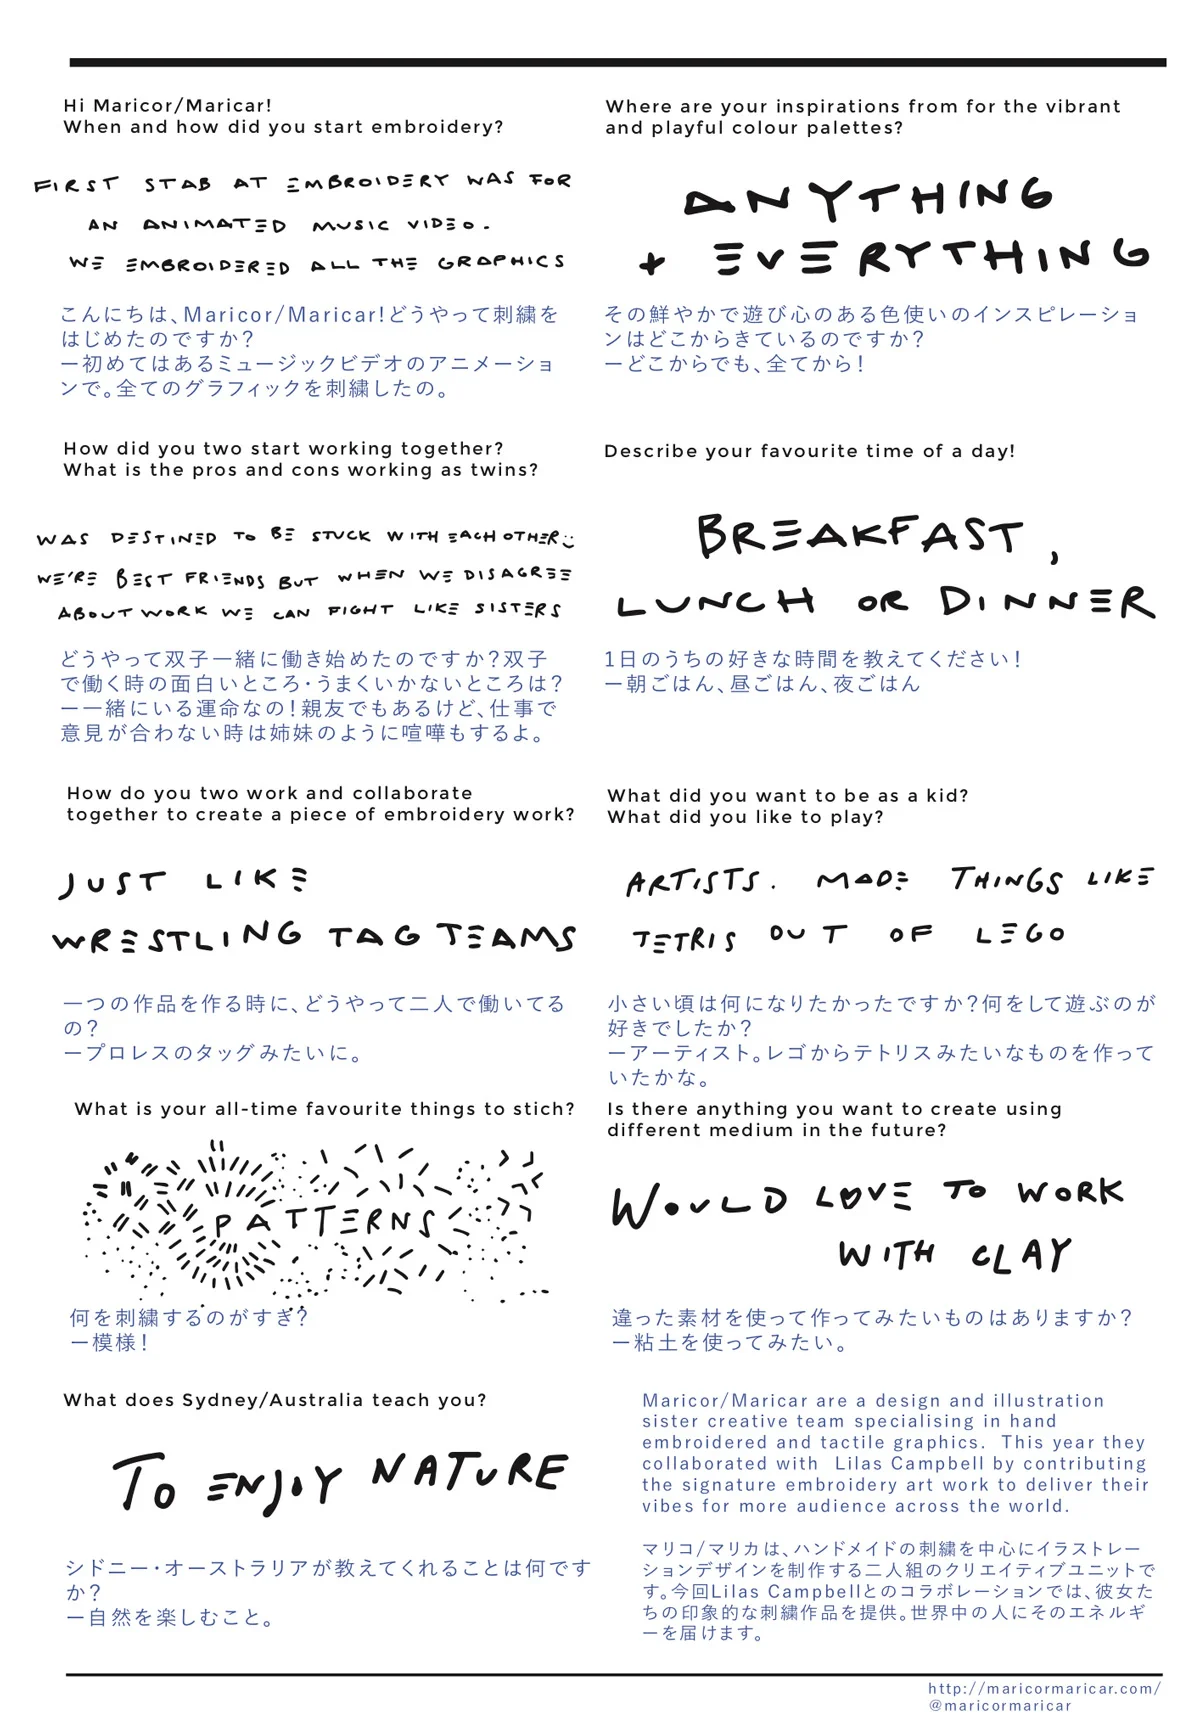 Hi Maricor/Maricar!
When and how did you start embroidery?
FIRST STAB AT EMBROIDERY WAS FOR
AN ANIMATED MUSIC VIDEO.
WE EMBROIDERED ALL THE GRAPHICS
こんにちは、Maricor/Maricar!どうやって刺繍を
はじめたのですか？
ー初めてはあるミュージックビデオのアニメーショ
ンで。全てのグラフィックを刺繍したの。
How did you two start working together?
What is the pros and cons working as twins?
WAS DESTINED TO BE STUCK WITH EACH OTHER :)
WE'RE BEST FRIENDS BUT WHEN WE DISAGREE
ABOUT WORK WE CAN FIGHT LIKE SISTERS
どうやって双子一緒に働き始めたのですか？双子
で働く時の面白いところ・うまくいかないところは？
ー一緒にいる運命なの！親友でもあるけど、仕事で
意見が合わない時は姉妹のように喧嘩もするよ。
How do you two work and collaborate
together to create a piece of embroidery work?
JUST LIKE
WRESTLING TAG TEAMS
一つの作品を作る時に、どうやって二人で働いてる
の？
ープロレスのタッグみたいに。
What is your all-time favourite things to stich?
PATTERNS
何を刺繍するのがすぎ？
ー模様！
What does Sydney/Australia teach you?
TO ENJOY NATURE
シドニー・オーストラリアが教えてくれることは何です
か？
ー自然を楽しむこと。
Where are your inspirations from for the vibrant
and playful colour palettes?
ANYTHING
+ EVERYTHING
その鮮やかで遊び心のある色使いのインスピレーショ
ンはどこからきているのですか？
ーどこからでも、全てから！
Describe your favourite time of a day!
BREAKFAST,
LUNCH OR DINNER
1日のうちの好きな時間を教えてください！
ー朝ごはん、昼ごはん、夜ごはん
What did you want to be as a kid?
What did you like to play?
ARTISTS. MADE THINGS LIKE
TETRIS OUT OF LEGO
小さい頃は何になりたかったですか？何をして遊ぶのが
好きでしたか？
ーアーティスト。レゴからテトリスみたいなものを作って
いたかな。
Is there anything you want to create using
different medium in the future?
WOULD LOVE TO WORK
WITH CLAY
違った素材を使って作ってみたいものはありますか？
ー粘土を使ってみたい。
Maricor/Maricar are a design and illustration
sister creative team specialising in hand
embroidered and tactile graphics. This year they
collaborated with Lilas Campbell by contributing
the signature embroidery art work to deliver their
vibes for more audience across the world.
マリコ/マリカは、ハンドメイドの刺繍を中心にイラストレー
ションデザインを制作する二人組のクリエイティブユニットで
す。今回Lilas Campbellとのコラボレーションでは、彼女た
ちの印象的な刺繍作品を提供。世界中の人にそのエネルギ
ーを届けます。
http://maricormaricar.com/
@maricormaricar